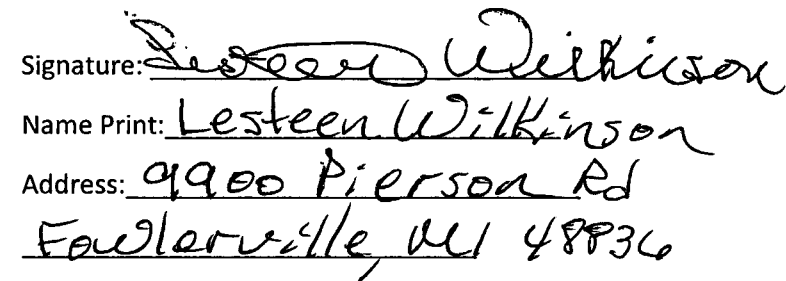 Signature: Lesteen Wilkinson
Name Print: Lesteen Wilkinson
Address: 9900 Pierson Rd
Fowlerville, MI 48836